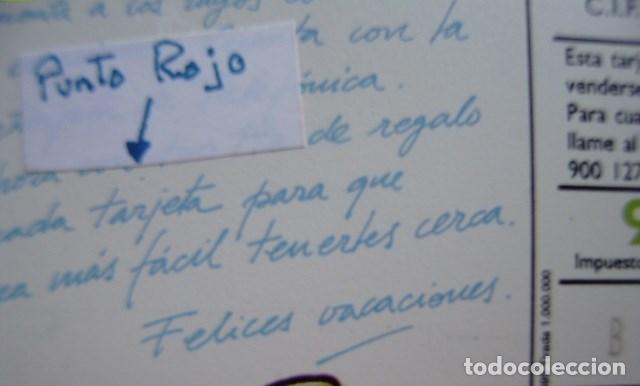 a los
con la
Punto Rojo
ónica.
de regalo
cada tarjeta para que
más fácil tenertes cerca.
Felices vacaciones.
C.I.F.
Esta tarj
venderse
Para cua
llame al
900 127
9
Impuesto
trada 1.000.000
B
todocoleccion